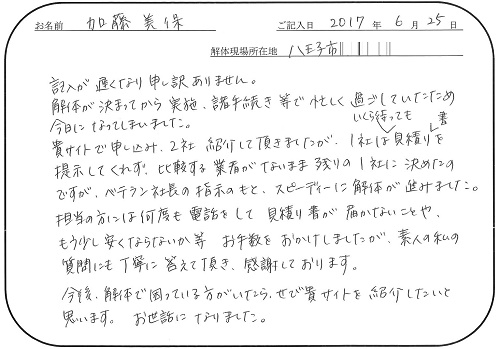 お名前 加藤美保 ご記入日 2017年6月25日
解体現場所在地 八王子市
記入が遅くなり申し訳ありません。
解体が決まってから実施、諸手続き等で忙しく過ごしていたため
今日になってしまいました。
いくら待っても
貴サイトで申し込み、2社紹介して頂きましたが、1社は見積り書を
提示してくれず、比較する業者がないまま残りの1社に決めたの
ですが、ベテラン社長の指示のもと、スピーディーに解体が進みました。
担当の方には何度も電話をして見積り書が届かないことや、
もう少し安くならないか等 お手数をおかけしましたが、素人の私の
質問にも丁寧に答えて頂き、感謝しております。
今後、解体で困っている方がいたら、ぜひ貴サイトを紹介したいと
思います。 お世話になりました。